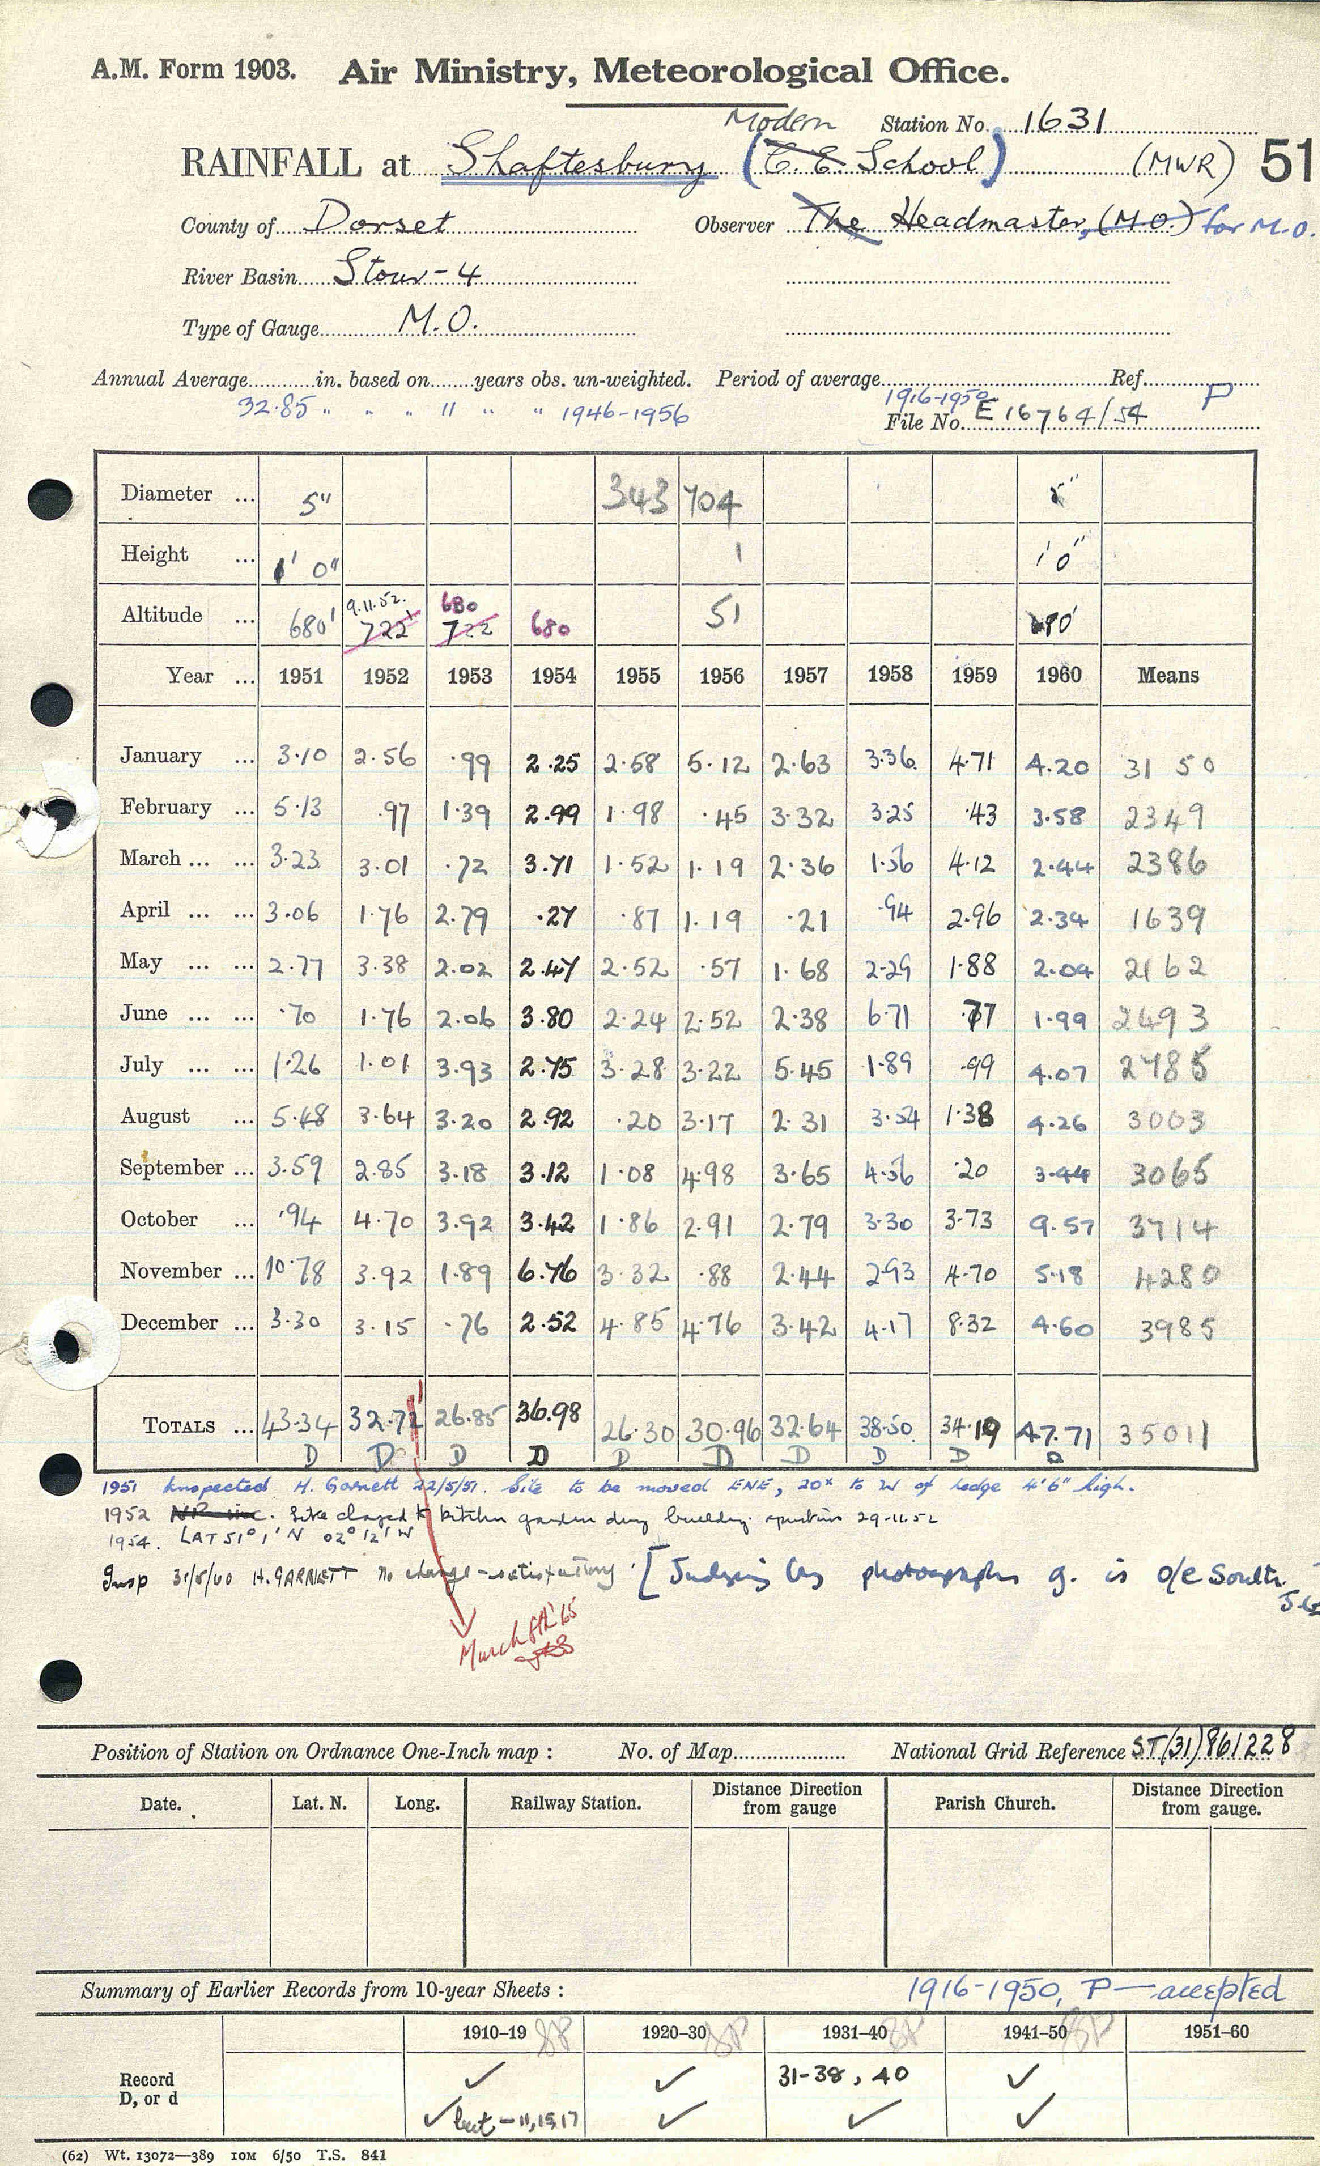 A.M. Form 1903. Air Ministry, Meteorological Office.
Modern Station No. 1631
RAINFALL at Shaftesbury (C.E. School) (MWR) 51
County of Dorset Observer The Headmaster, (M.O.) for M.O.
River Basin Stour - 4
Type of Gauge M.O.
Annual Average in. based on years obs. un-weighted. Period of average Ref.
32.85 " " " 11 " " 1946-1956 1916-1950 P
File No. E 16764/54
Diameter ... 5" 343 704 5"
Height ... 1' 0" 1 1' 0"
9.11.52. 680
Altitude ... 680' 722' 722 680 51 680'
Year ... 1951 1952 1953 1954 1955 1956 1957 1958 1959 1960 Means
January ... 3.10 2.56 .99 2.25 2.58 5.12 2.63 3.36 4.71 4.20 31 50
February ... 5.13 .97 1.39 2.99 1.98 .45 3.32 3.25 .43 3.58 2349
March ... ... 3.23 3.01 .72 3.71 1.52 1.19 2.36 1.56 4.12 2.44 2386
April ... ... 3.06 1.76 2.79 .27 .87 1.19 .21 .94 2.96 2.34 1639
May ... ... 2.77 3.38 2.02 2.47 2.52 .57 1.68 2.29 1.88 2.04 2162
June ... ... .70 1.76 2.06 3.80 2.24 2.52 2.38 6.71 .77 1.99 2493
July ... ... 1.26 1.01 3.93 2.75 3.28 3.22 5.45 1.89 .99 4.07 2785
August ... 5.48 3.64 3.20 2.92 .20 3.17 2.31 3.54 1.38 4.26 3003
September ... 3.59 2.85 3.18 3.12 1.08 4.98 3.65 4.56 .20 3.44 3065
October ... .94 4.70 3.92 3.42 1.86 2.91 2.79 3.30 3.73 9.57 3714
November ... 10.78 3.92 1.89 6.76 3.32 .88 2.44 2.93 4.70 5.18 4280
December ... 3.30 3.15 .76 2.52 4.85 4.76 3.42 4.17 8.32 4.60 3985
TOTALS ... 43.34 32.71 26.85 36.98 26.30 30.96 32.64 38.50 34.19 47.71 35011
D D D D D D D D D D
1951 Inspected H. Garnett 22/5/51. Site to be moved ENE, 20x to W of hedge 4'6" high.
1952 Site changed to kitchen garden during building operations 29-11-52
1954. LAT 51° 1' N 02° 12' W
Insp 31/5/60 H. GARNETT No change - satisfactory. [Judging by photographs g. is o/e South.
March 8th '65
Position of Station on Ordnance One-Inch map : No. of Map National Grid Reference ST(31)861228
Date. Lat. N. Long. Railway Station. Distance Direction from gauge Parish Church. Distance Direction from gauge.
Summary of Earlier Records from 10-year Sheets : 1916-1950, P — accepted
1910–19 1920–30 1931–40 1941–50 1951–60
Record ✓ ✓ 31-38, 40 ✓
D, or d ✓ but - 11,15,17 ✓ ✓ ✓
(62) Wt. 13072—389 10M 6/50 T.S. 841